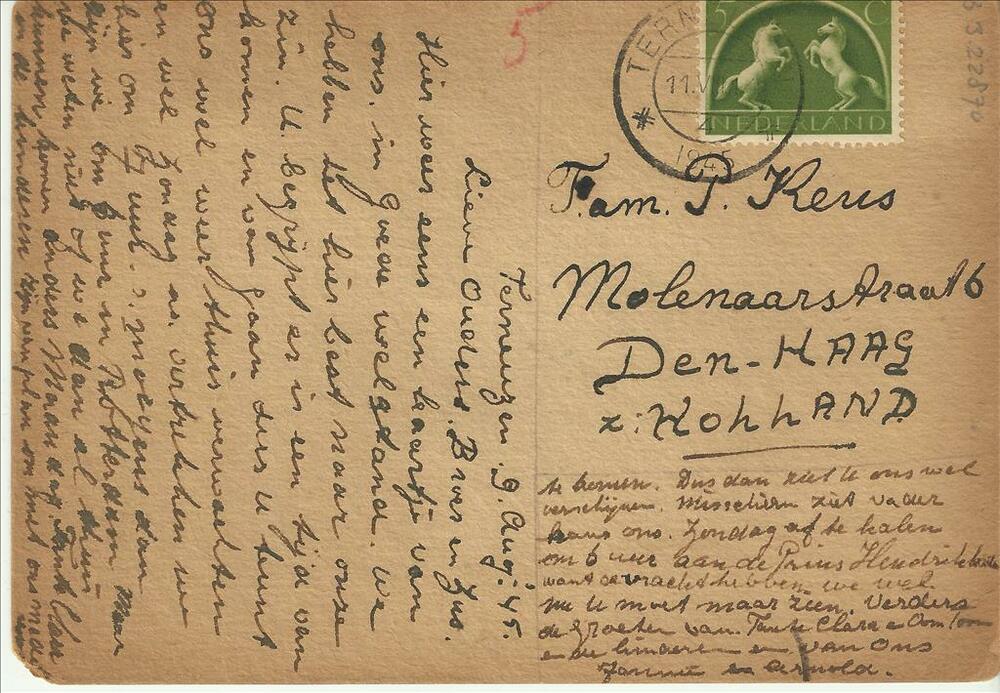 5
5 C
NEDERLAND
TERN
11.V
1945
Fam. P. Keus
Molenaarstraat 6
Den-HAAG
z: HOLLAND
Terneuzen. 9. Aug.'45.
Lieve Ouders. Broes en Zus.
Hier weer eens een kaartje van
ons. in goede welstand. we
hebben het hier best naar onze
zin. U begrijpt er is een tijd van
komen en van gaan dus u kunt
ons wel weer thuis verwachten
en wel Zondag as. vertrekken we
hier om 7 uur s'morgens dan
zijn we om 6 uur in Rotterdam maar
we weten niet of we dan al thuis
kunnen komen anders Maandag. Tante Clara
en de kinderen zijn van plan om met ons mede
te komen. Dus dan ziet U ons wel
verschijnen. Misschien ziet vader
kans ons. Zondag af te halen
om 6 uur aan de Prins Hendrikkade
want de vracht hebben we wel
nu U moet maar zien. Verders
de groeten van. Tante Clara en Oom Toon
en de kinderen en van Ons
en Arnold.